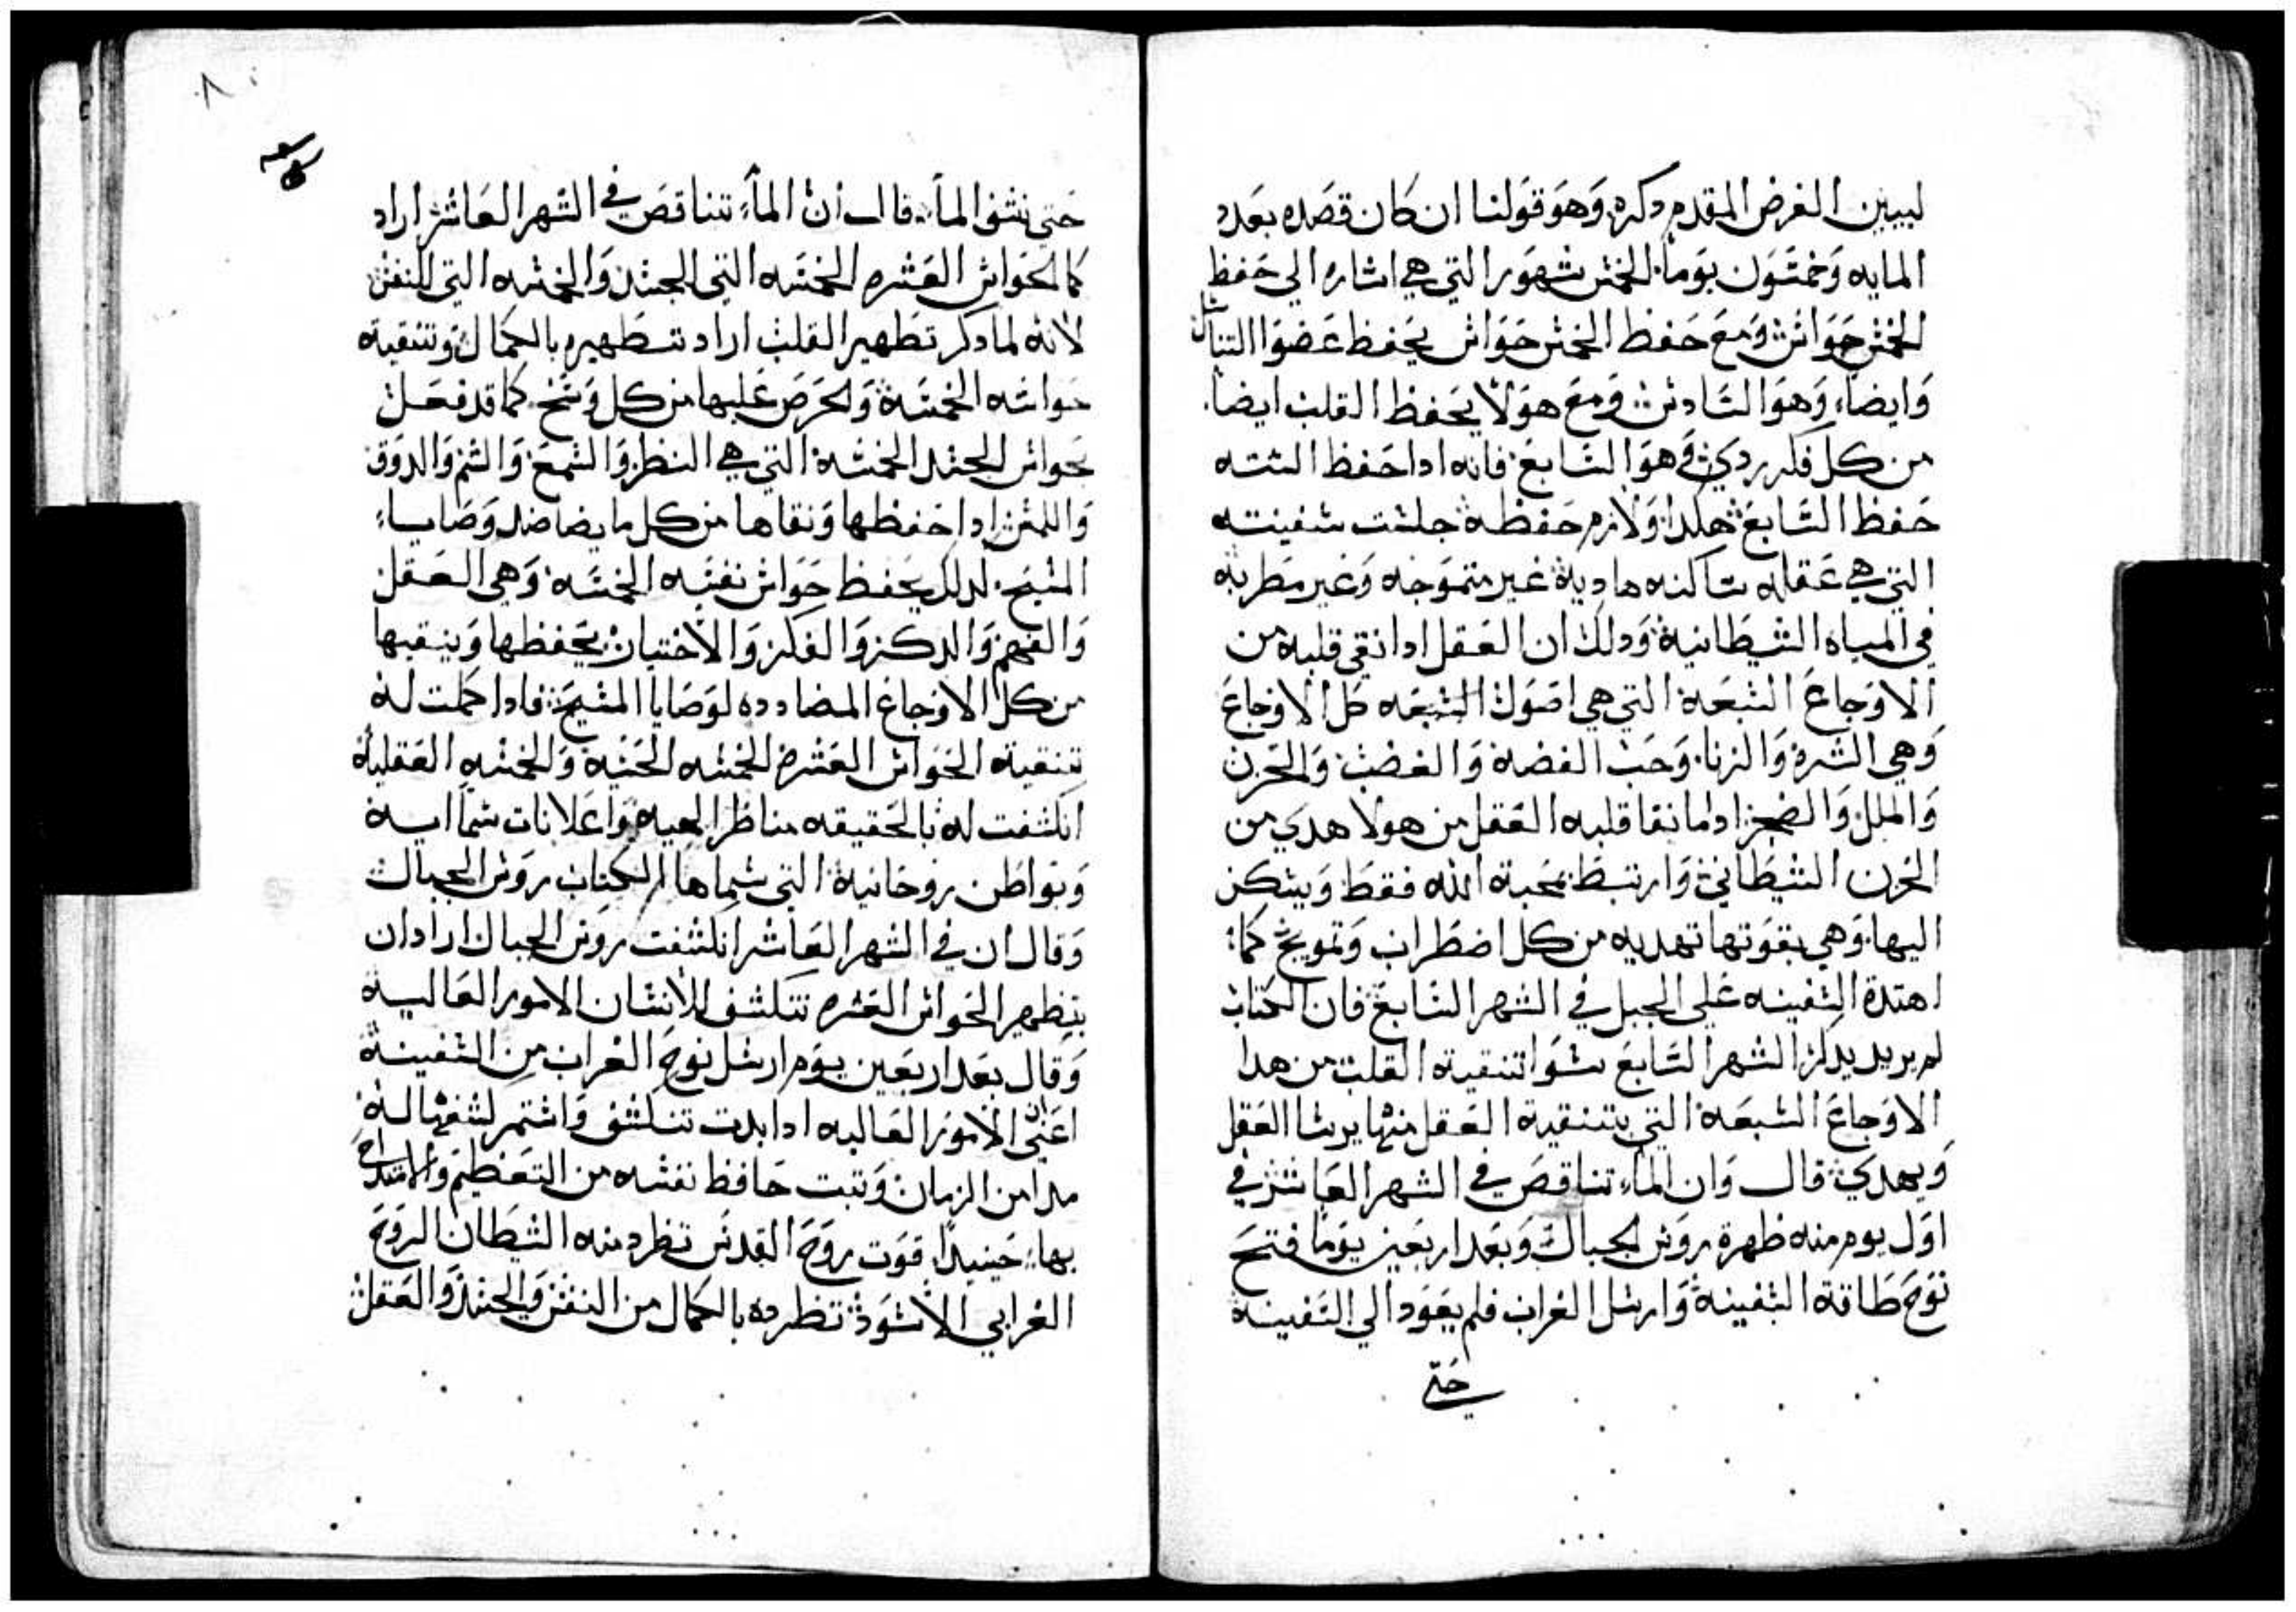 ليبين الغرض المقدم دكره وَهوَ قوَلنا ان كان قصَده بعَدد
المايه وَخمسَوَن يوَماً. الخمَس شهوَر التي هي اشاره الي حَفظ
الخمَس حَوَاسَ وَمعَ حَفظ الخمَس حَوَاس يحَفظ عَضوَا التناسَل
وَايضاً، وَهوَا السَادسَ وَمعَ هوَلاَ يحَفظ القلب ايضاً.
من كل فكر ردي وَهوَا السَابعَ فانه ادا حَفظ السته
حَفظ السَابعَ هكدا وَلازم حَفظهَ جلسَت سَفينته
التي هي عَقله سَاكنه هاديهَ غير متموَجه وَغير مضطربه
في المياه الشيَطانيهَ وَدلك ان العَقل ادا نقي قلبه من
الاوَجاعَ السَبعَة التي هي اصَوَل السَبعَه كل الاوَجاعَ
وَهي الشَره وَالزنا. وَحَب الفضهَ وَالغضبَ. وَالحَزن
وَالملل وَالضجر ادا ما نقا قلبه العَقل من هولا هدي من
الحَزن الشيطَاني وَارتبطَ بمَحَبة الله فقطَ وَيسَكن
اليها. وَهي بقوَتها تهديه من كل اضطَراب وَتمويج كما:
اهتدة السَفينه عَلي الجبل في الشهر السَابعَ فان الكتاب
لم يريد يدكر الشهر السَابعَ سَوَا تنقية القلب من هدا
الاوَجاعَ السَبعَة التي بتنقية العَقل منها يرسَا العَقل
وَيهدي. قال وَان الماء تناقصَ في الشهر العَاشر في
اوَل يوم منه ظهرة روَس الجبال وَبعَد اربعَين يوَماً فتحَ
نوَحَ طَاقة السَفينهَ وَارسَل الغراب فلم يعَوَد الي السَفينهَ
حَتي
حَتي نشف الماء. قال أن الماء تناقصَ في الشَهر العَاشر اراد
كمالحَوَاس العَشره الخمسَه التي الجسَد وَالخمسَه التي النفسَ
لانه لما دكر تطَهير القلب اراد تطَهيره بالكمال وَتنقية
حَواسَه الخمسَةَ وَالحَرصَ عَليها من كل وَسَخ. كما قد فعَل
بحَواس الجسَد الخمسَةَ التي هي النظر. وَالسَمعَ وَالشم وَالدوَق
وَاللمسَ ادا حَفظها وَنقاها من كل ما يضاضد وَصَاياء
المسَيحَ. لدلك يحَفظ حَوَاس نفسَه الخمسَه وَهي العَقل
وَالفهم وَالدكر وَالفكر وَالاختيار يحَفظها وَينقيها
من كل الاوَجاعَ المضادده لوَصَايا المسَيحَ فادا كملت لهَ
تنقية الحَوَاس العَشره الخمسَه الحَسيَه وَالخمسَه العَقليهَ
انكشفت له بالحَقيقه مناظر الهيه وَاعَلانات سَمائيه
وَبوَاطَن روحَانيةَ التي سَماها الكتاب روَس الجبال
وَقال ان في الشهر العَاشر انكشفت روَس الجبال اراد ان
بتطَهير الحَوَاس العَشره تنكشف للانسَان الامور العَاليه
وَقال بعَد اربعَين يوَم ارسَل نوحَ الغراب من السَفينهَ
اعَني ان الاموَر العَاليه ادا بدت تنكشف وَاسَتمر كشفها لهَ
مدا من الزمان وَتبت حَافظ نفسَه من التعَظيم وَالامتداحَ
بها. حَينيداً قوَت روَحَ القدسَ تطرد منه الشيطَان الروَحَ
الغرابي الاسَوَد تطرده بالكمال من النفس وَالجسَد وَالعَقل